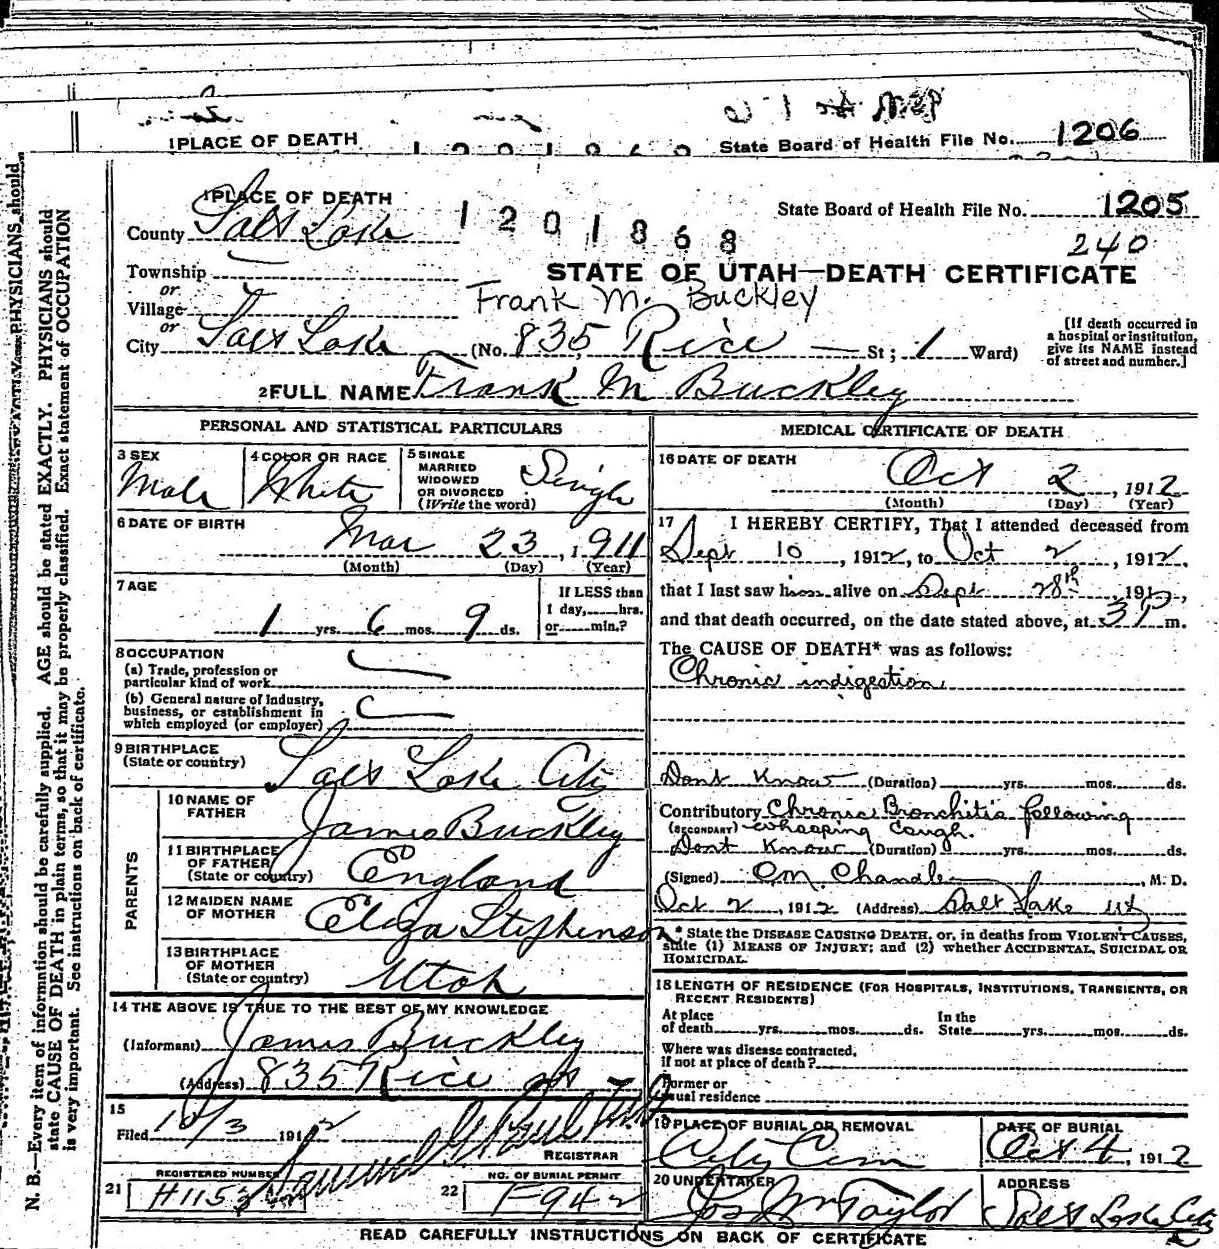 1 PLACE OF DEATH
State Board of Health File No. 1206
N. B.—Every item of information should be carefully supplied. AGE should be stated EXACTLY. PHYSICIANS should
state CAUSE OF DEATH in plain terms, so that it may be properly classified. Exact statement of OCCUPATION
is very important. See instructions on back of certificate.
1 PLACE OF DEATH
1201868
State Board of Health File No. 1205
County Salt Lake
240
Township
STATE OF UTAH—DEATH CERTIFICATE
or
Village
Frank M. Buckley
or
City Salt Lake (No. 835 Rice St; 1 Ward)
[If death occurred in
a hospital or institution,
give its NAME instead
of street and number.]
2 FULL NAME Frank M Buckley
PERSONAL AND STATISTICAL PARTICULARS
3 SEX
Male
4 COLOR OR RACE
White
5 SINGLE
MARRIED
WIDOWED
OR DIVORCED
(Write the word)
Single
6 DATE OF BIRTH
Mar 23, 1911
(Month) (Day) (Year)
7 AGE
1 yrs. 6 mos. 9 ds.
If LESS than
1 day, hrs.
or min.?
8 OCCUPATION
(a) Trade, profession or
particular kind of work
(b) General nature of industry,
business, or establishment in
which employed (or employer)
9 BIRTHPLACE
(State or country)
Salt Lake City
PARENTS
10 NAME OF
FATHER
James Buckley
11 BIRTHPLACE
OF FATHER
(State or country)
England
12 MAIDEN NAME
OF MOTHER
Eliza Stephenson
13 BIRTHPLACE
OF MOTHER
(State or country)
Utah
14 THE ABOVE IS TRUE TO THE BEST OF MY KNOWLEDGE
(Informant) James Buckley
(Address) 835 Rice
15
Filed 10/3 1912
REGISTRAR
REGISTERED NUMBER
21 H1153
NO. OF BURIAL PERMIT
22 F942
MEDICAL CERTIFICATE OF DEATH
16 DATE OF DEATH
Oct 2, 1912
(Month) (Day) (Year)
17 I HEREBY CERTIFY, That I attended deceased from
Sept 10, 1912, to Oct 2, 1912,
that I last saw him alive on Sept 28th 1912,
and that death occurred, on the date stated above, at 3 P m.
The CAUSE OF DEATH* was as follows:
Chronic indigestion
Dont Know (Duration) yrs. mos. ds.
Contributory Chronic Bronchitis following
(SECONDARY) whooping cough.
Dont Know (Duration) yrs. mos. ds.
(Signed) C.M. Chandler, M. D.
Oct 2, 1912 (Address) Salt Lake Ut
* State the DISEASE CAUSING DEATH, or, in deaths from VIOLENT CAUSES,
state (1) MEANS OF INJURY; and (2) whether ACCIDENTAL, SUICIDAL OR
HOMICIDAL.
18 LENGTH OF RESIDENCE (FOR HOSPITALS, INSTITUTIONS, TRANSIENTS, OR
RECENT RESIDENTS)
At place
of death yrs. mos. ds.
In the
State yrs. mos. ds.
Where was disease contracted,
if not at place of death?
Former or
usual residence
19 PLACE OF BURIAL OR REMOVAL
City Cem
DATE OF BURIAL
Oct 4, 1912
20 UNDERTAKER
Jos Wm Taylor
ADDRESS
Salt Lake City
READ CAREFULLY INSTRUCTIONS ON BACK OF CERTIFICATE